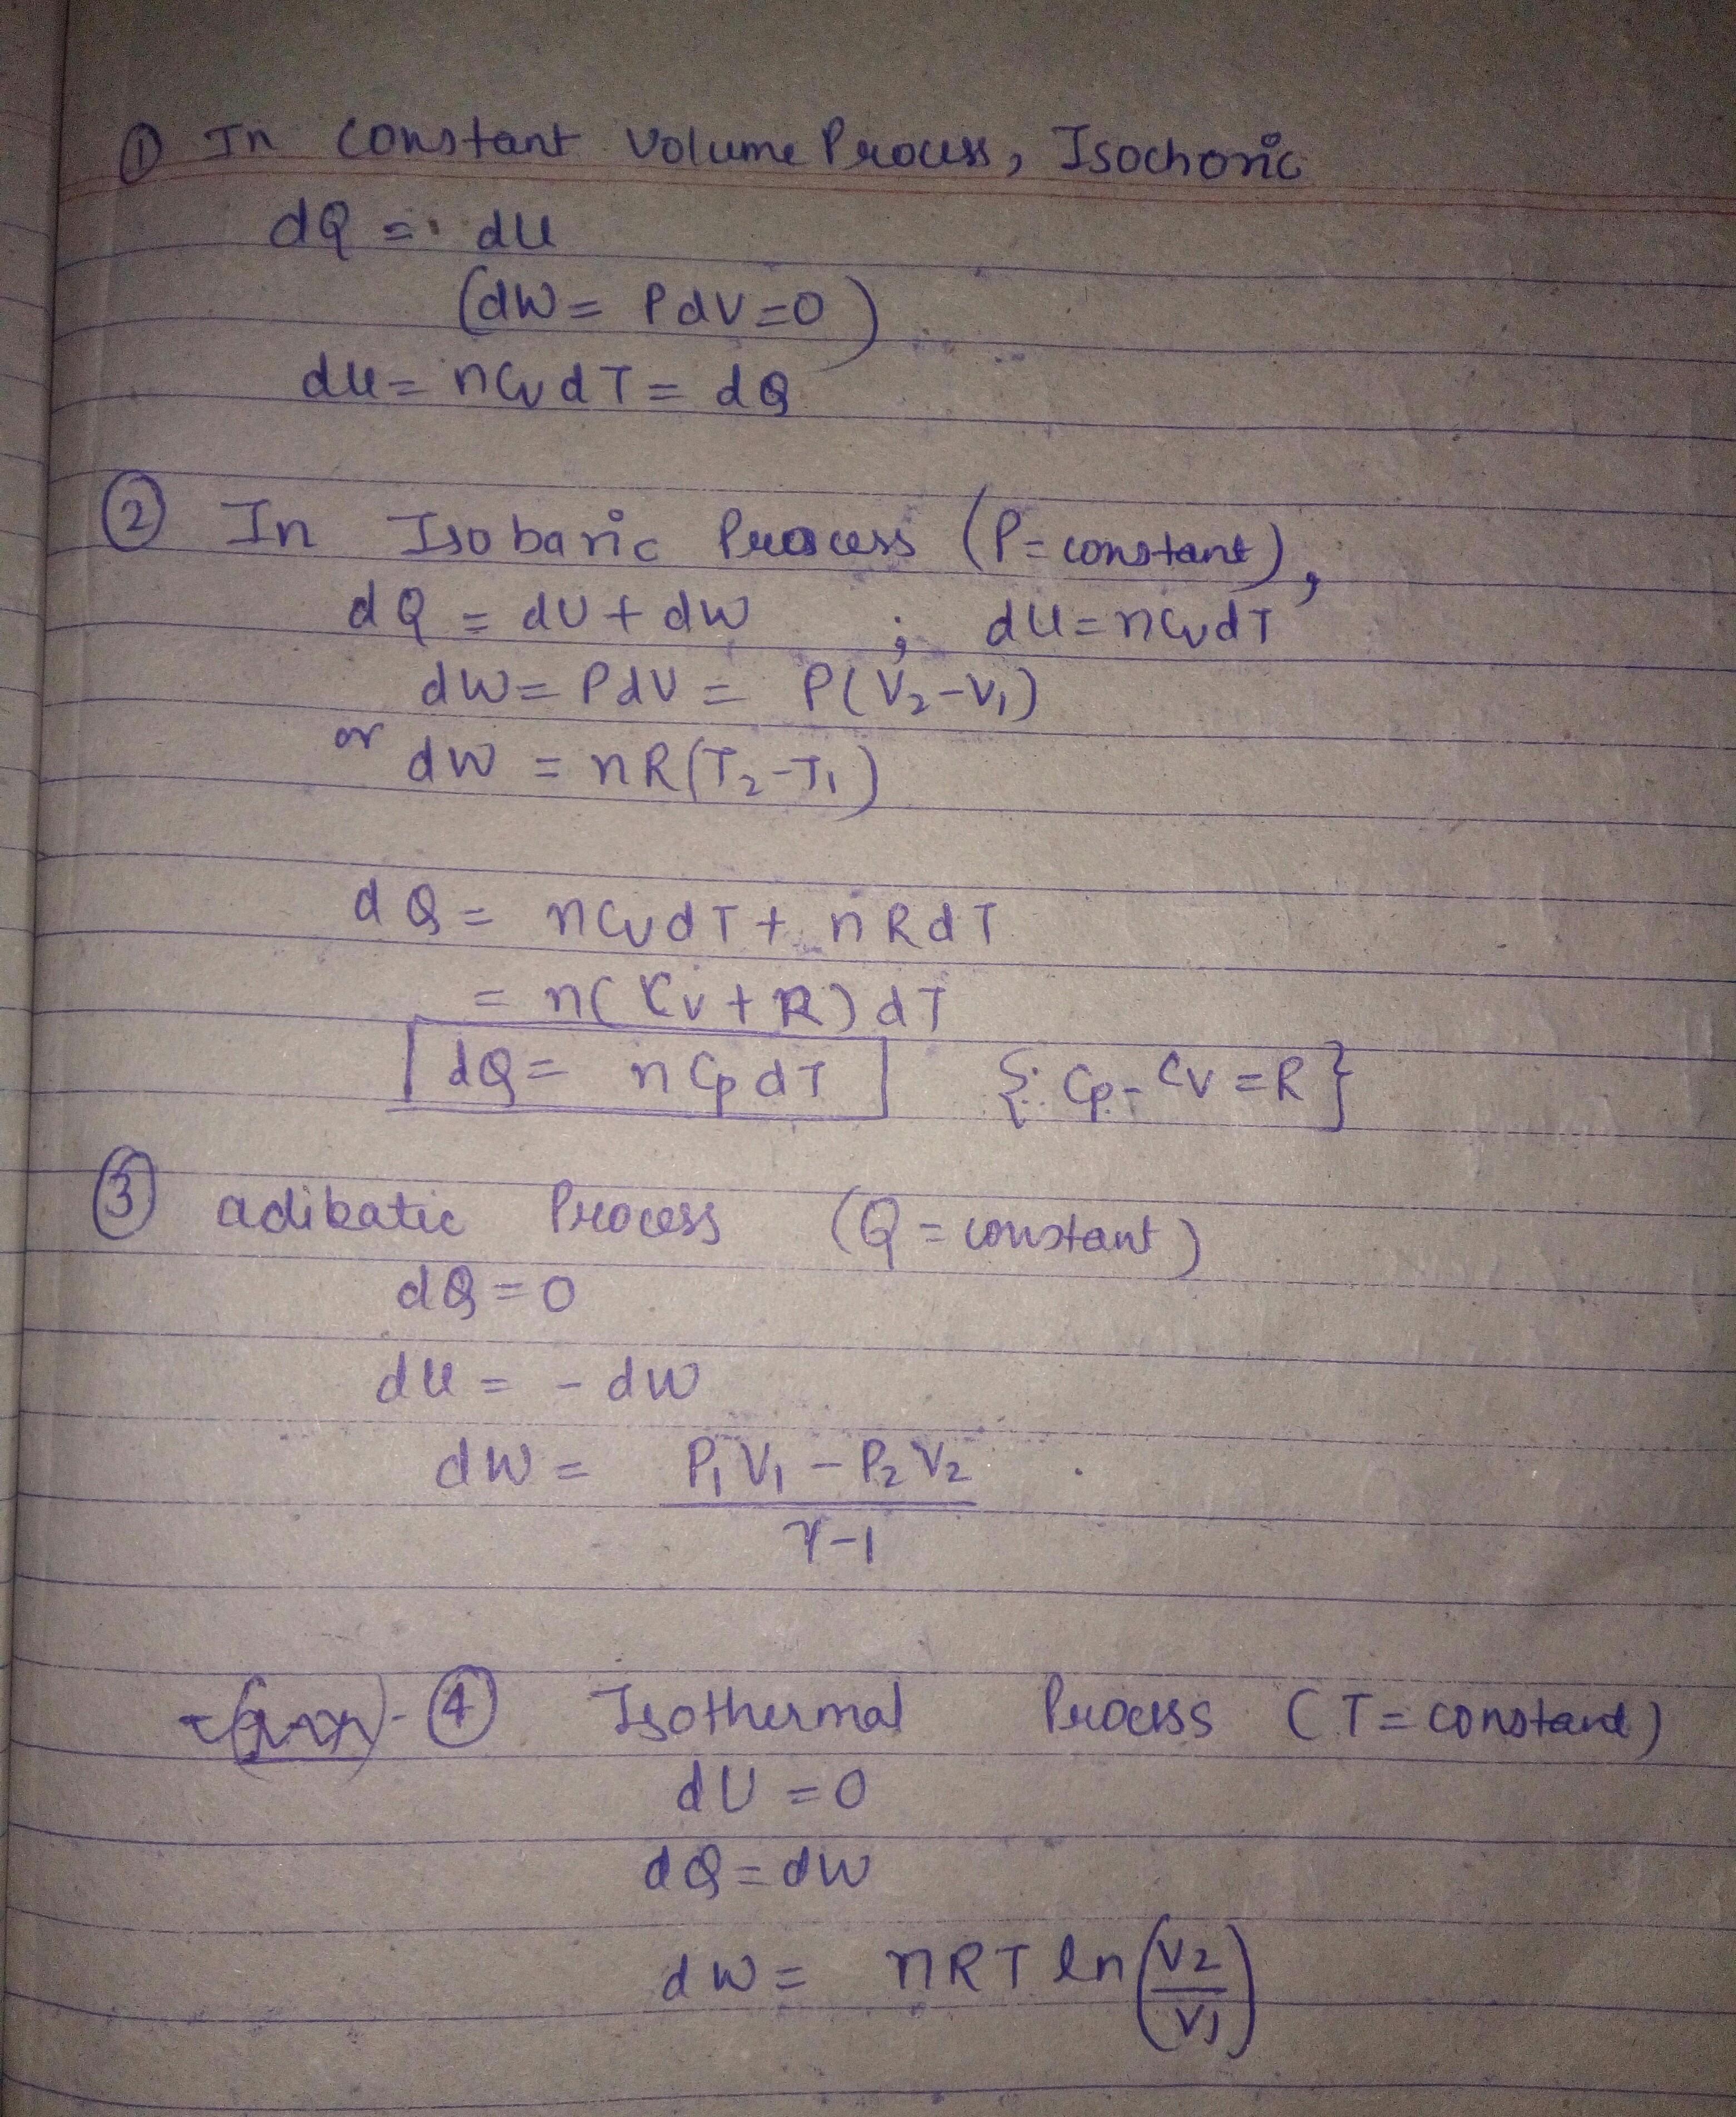 ① In constant volume Process, Isochoric
dQ = dU
(dW = PdV = 0)
dU = nCvdT = dQ
② In Isobaric Process (P = constant),
dQ = dU + dW ; dU = nCvdT
dW = PdV = P(V₂-V₁)
or dW = nR(T₂-T₁)
dQ = nCvdT + nRdT
= n(Cv + R)dT
dQ = nCpdT {∵ Cp - Cv = R}
③ adibatic Process (Q = constant)
dQ = 0
dU = - dW
dW = P₁V₁ - P₂V₂
γ-1
④ Isothermal Process (T = constant)
dU = 0
dQ = dW
dW = nRT ln(V₂/V₁)